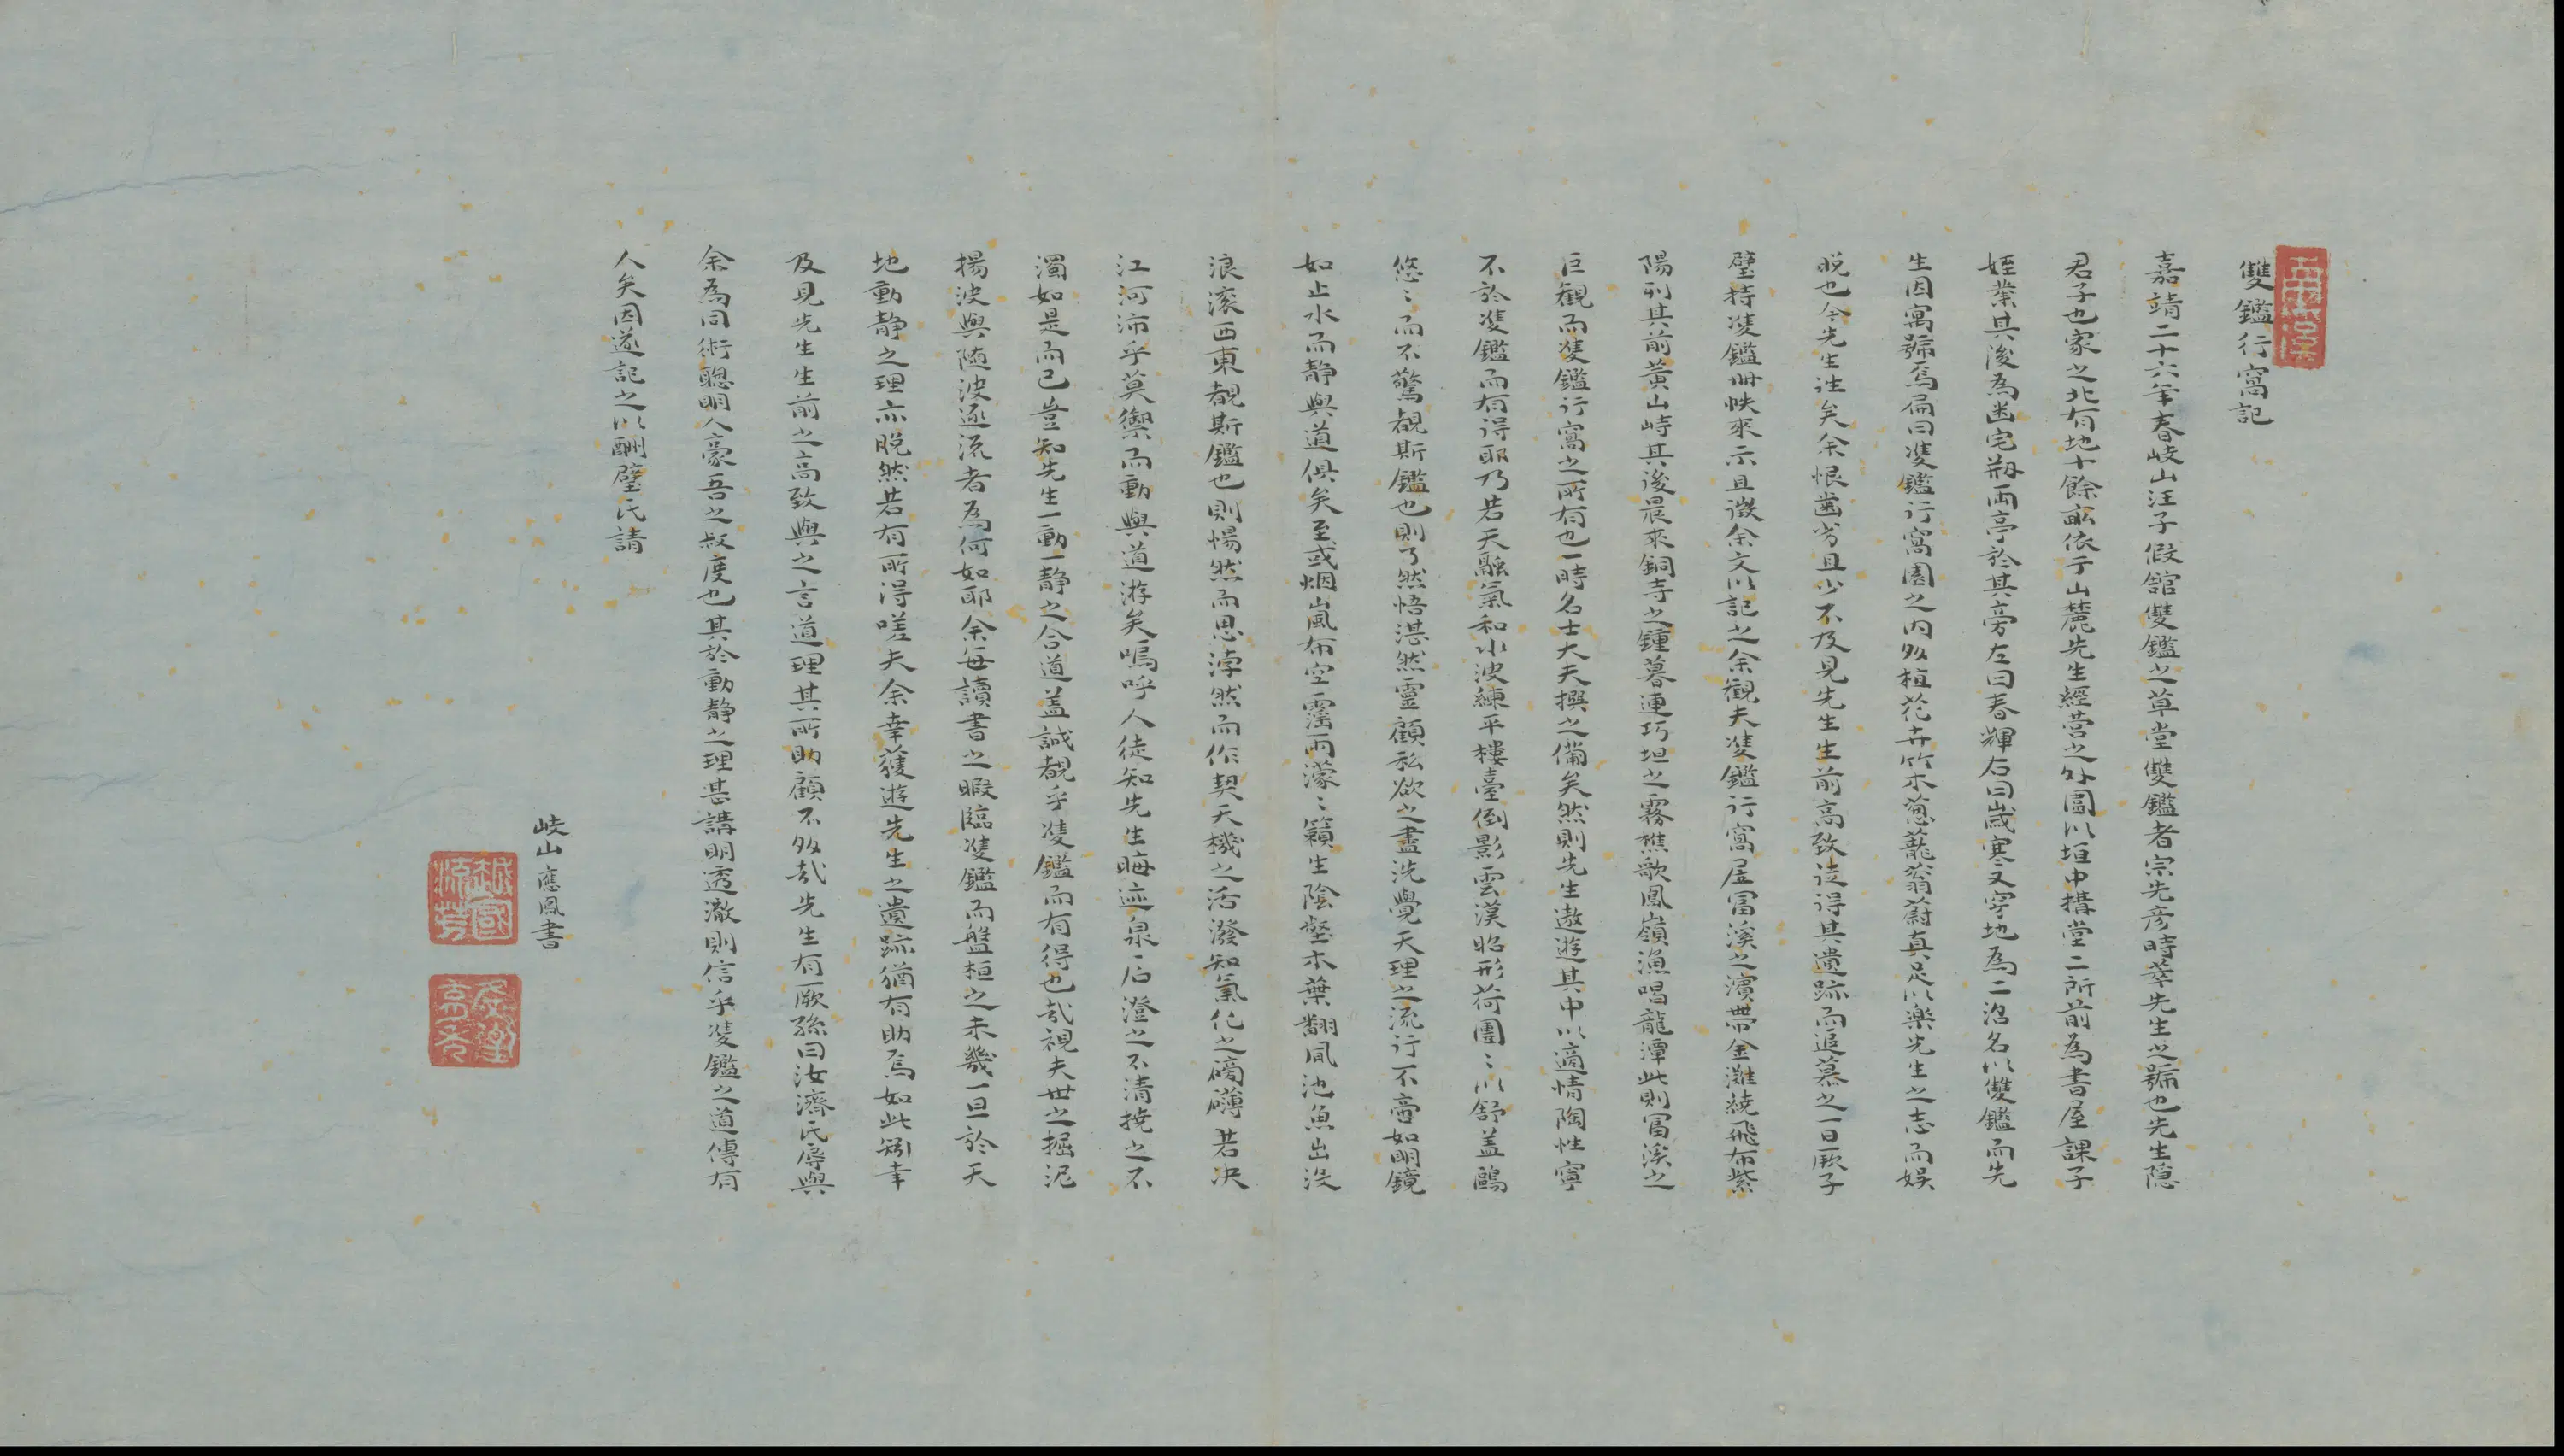 雙鑑行窩記
嘉靖二十六年春岐山汪子假舘雙鑑之草堂雙鑑者宗先彦時萃先生之號也先生隠
君子也家之北有地十餘畝依于山麓先生經营之外圍以垣中搆堂二所前為書屋課子
姪業其後為幽宅剏兩亭於其旁左曰春輝右曰歲寒又穿地為二沼名以雙鑑而先
生因寓號焉扁曰雙鑑行窩園之内多植花卉竹木葱蘢蓊蔚真足以樂先生之志而娱
晚也今先生逝矣余恨齒劣且少不及見先生生前高致徒得其遺跡而追慕之一日厥子
璧持雙鑑冊帙來示且徵余文以記之余觀夫雙鑑行窩居冨溪之濱帶金灘繞飛布紫
陽列其前黃山峙其後晨來銅寺之鍾暮連圬坦之霧樵歌鳳嶺漁唱龍潭此則冨溪之
巨觀而雙鑑行窩之所有也一時名士大夫撰之備矣然則先生遨遊其中以適情陶性寧
不於雙鑑而有得耶乃若天融氣和水波練平樓臺倒影雲漢昭形荷團〻以舒盖鷗
悠〻而不驚覩斯鑑也則了然悟湛然靈顧私欲之盡洗覺天理之流行不啻如明鏡
如止水而静與道俱矣至或烟嵐布空霪雨濛〻籟生陰壑木葉翻風池魚出没
浪滚西東覩斯鑑也則惕然而思浡然而作契天機之活潑知氣化之磅礴若决
江河沛乎莫禦而動與道游矣嗚呼人徒知先生晦迹泉石澄之不清撓之不
濁如是而已豈知先生一動一静之合道盖誠覩乎雙鑑而有得也哉視夫世之掘泥
揚波與隨波逐流者為何如耶余每讀書之暇臨雙鑑而盤桓之未幾一旦於天
地動静之理亦晚然若有所得嗟夫余幸獲遊先生之遺跡猶有助焉如此矧幸
及見先生生前之高致與之言道理其所助顧不多哉先生有厥孫曰汝濟氏辱與
余為同術聰明人豪吾之叔度也其於動静之理甚講明透澈則信乎雙鑑之道傳有
人矣因遂記之以酬璧氏請
岐山應鳳書
越國流芳